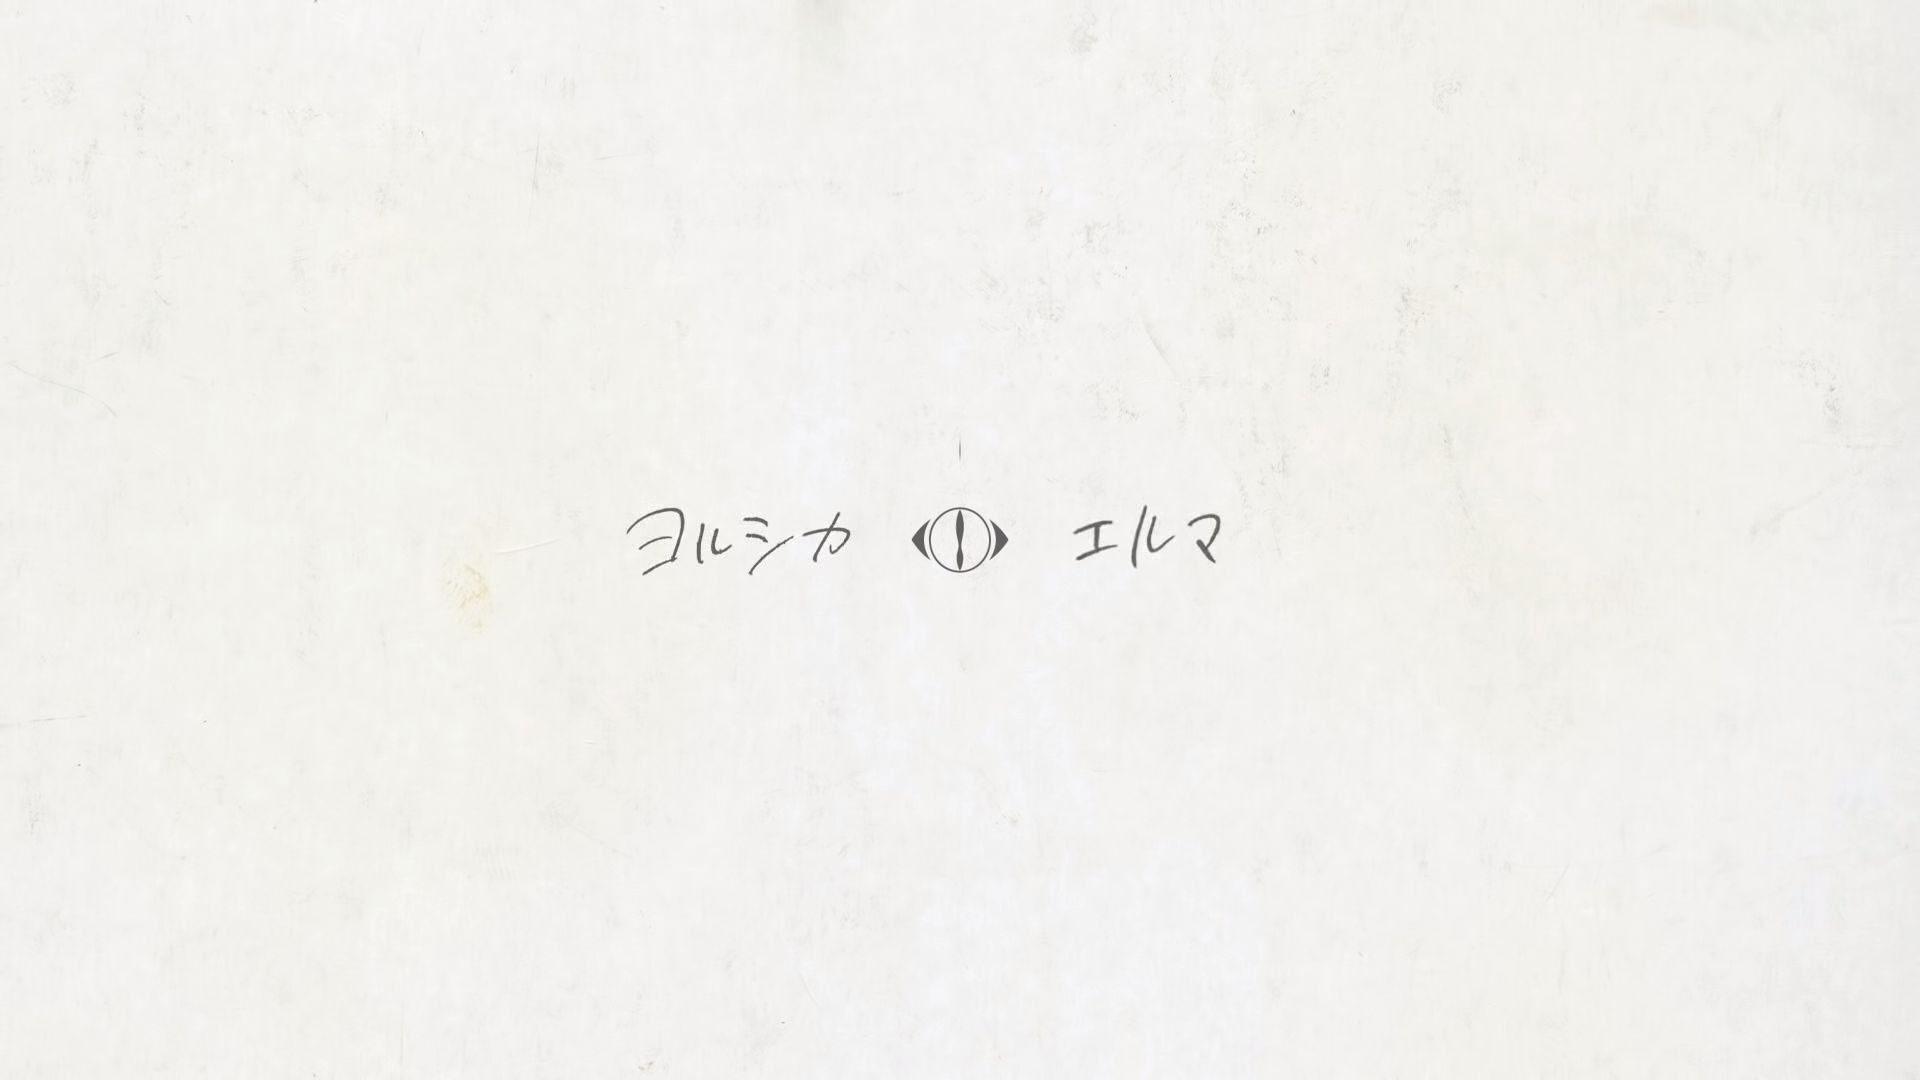 ヨルシカ エルマ